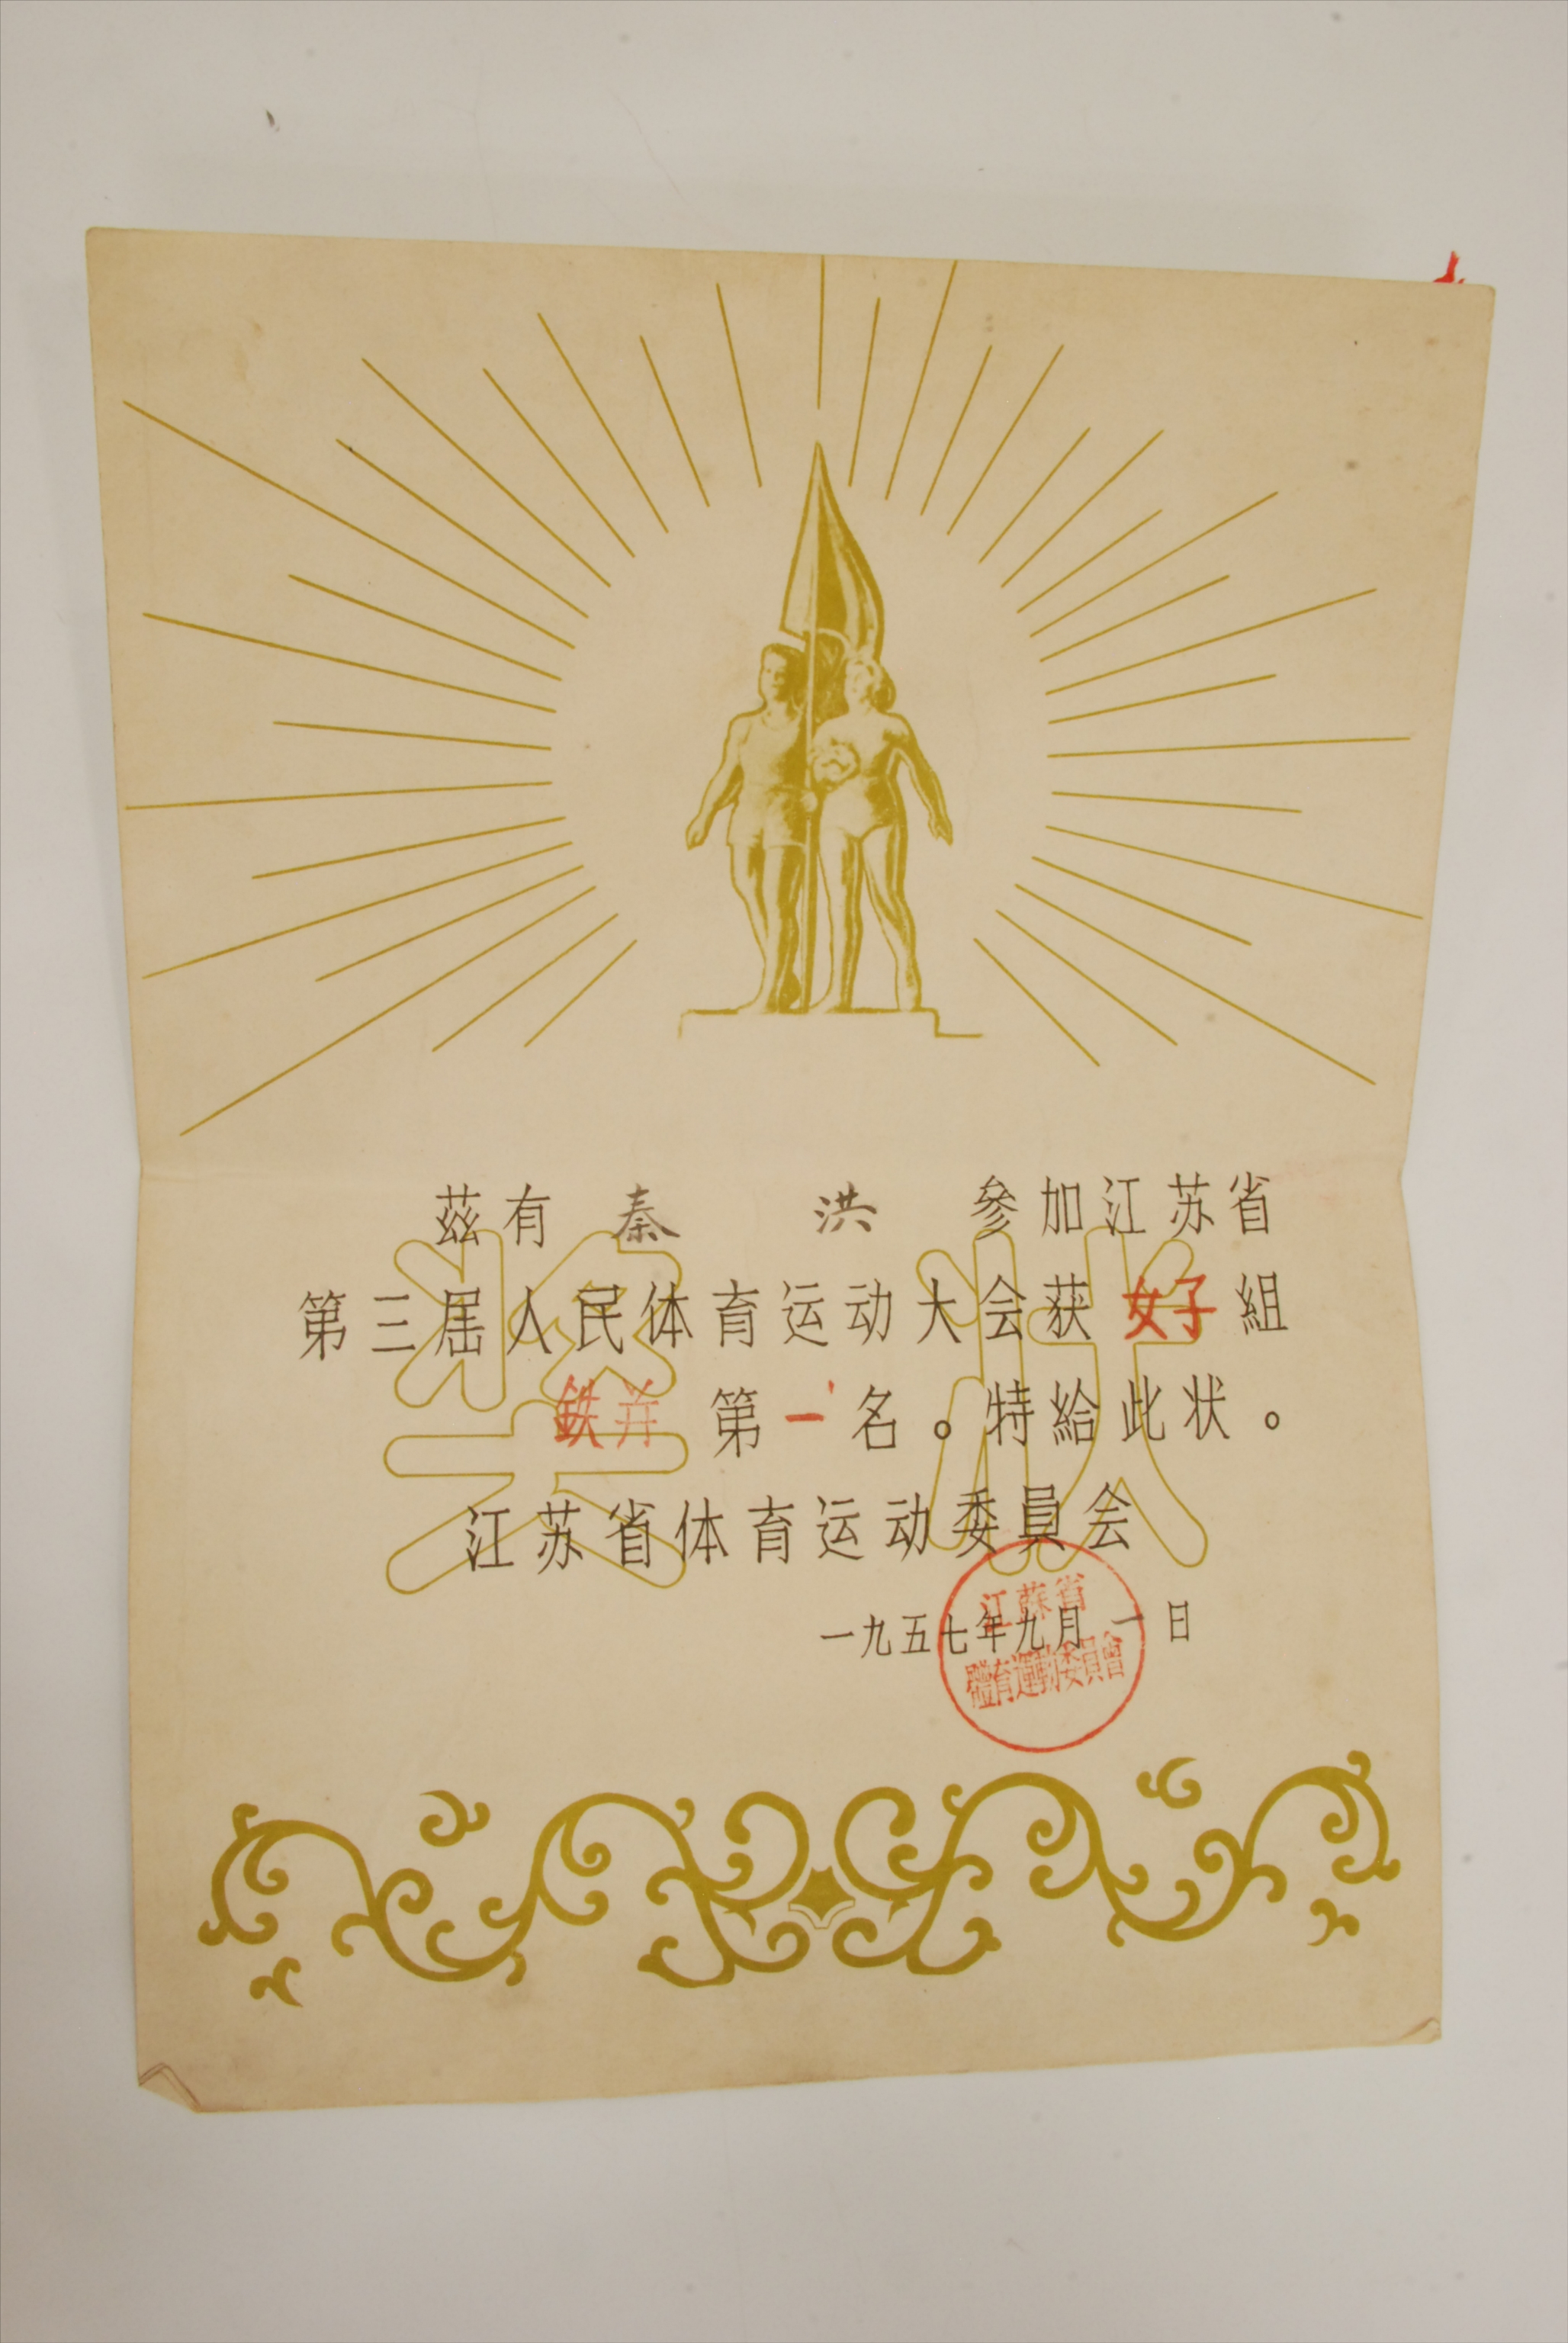 奖状
茲有 秦 洪 參加江苏省
第三届人民体育运动大会获 女子 組
鉄并 第一名。特給此状。
江苏省体育运动委員会
一九五七年九月一日
江蘇省
體育運動委員會